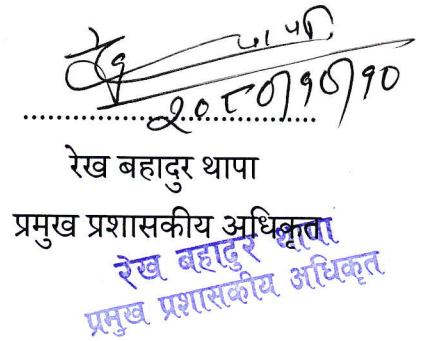 २०८०/१०/१०
रेख बहादुर थापा
प्रमुख प्रशासकीय अधिकृत
रेख बहादुर थापा
प्रमुख प्रशासकीय अधिकृत